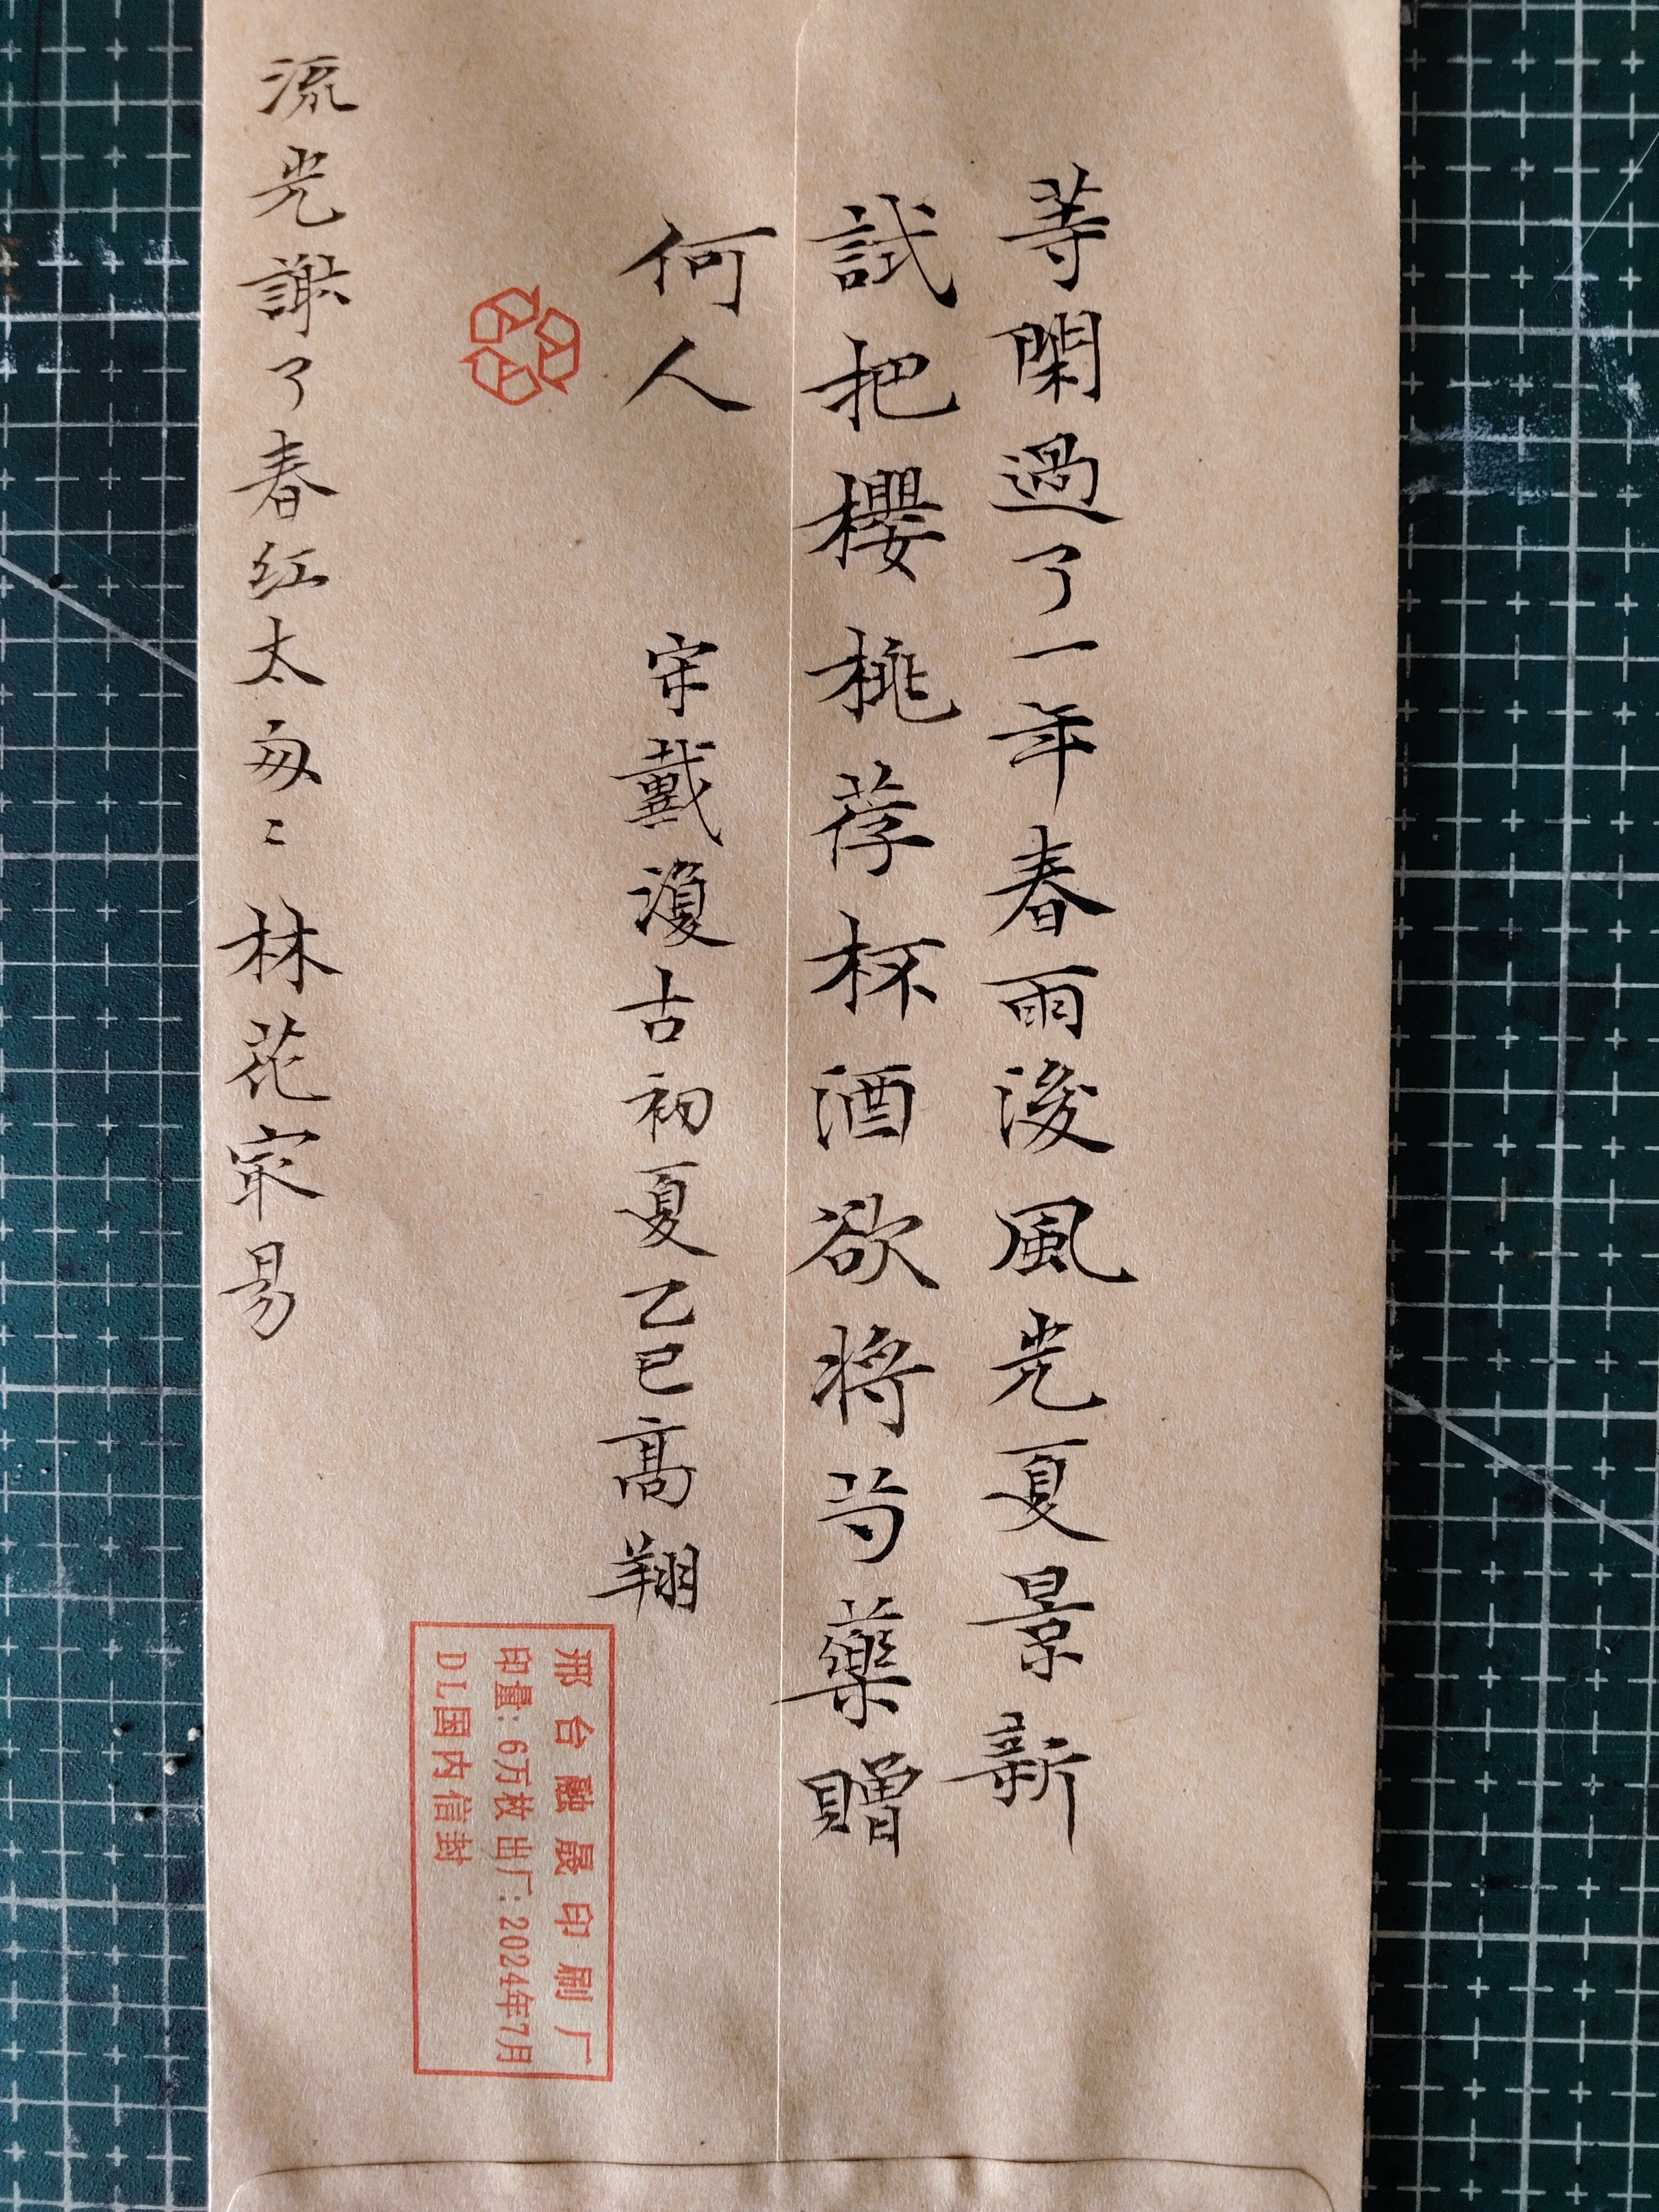 等閑過了一年春雨後風光夏景新
試把櫻桃荐杯酒欲將芍藥贈
何人
宋戴復古初夏乙巳高翔
流光謝了春红太匆〻林花寂易
邢台融晟印刷厂
印量：6万枚 出厂：2024年7月
DL国内信封